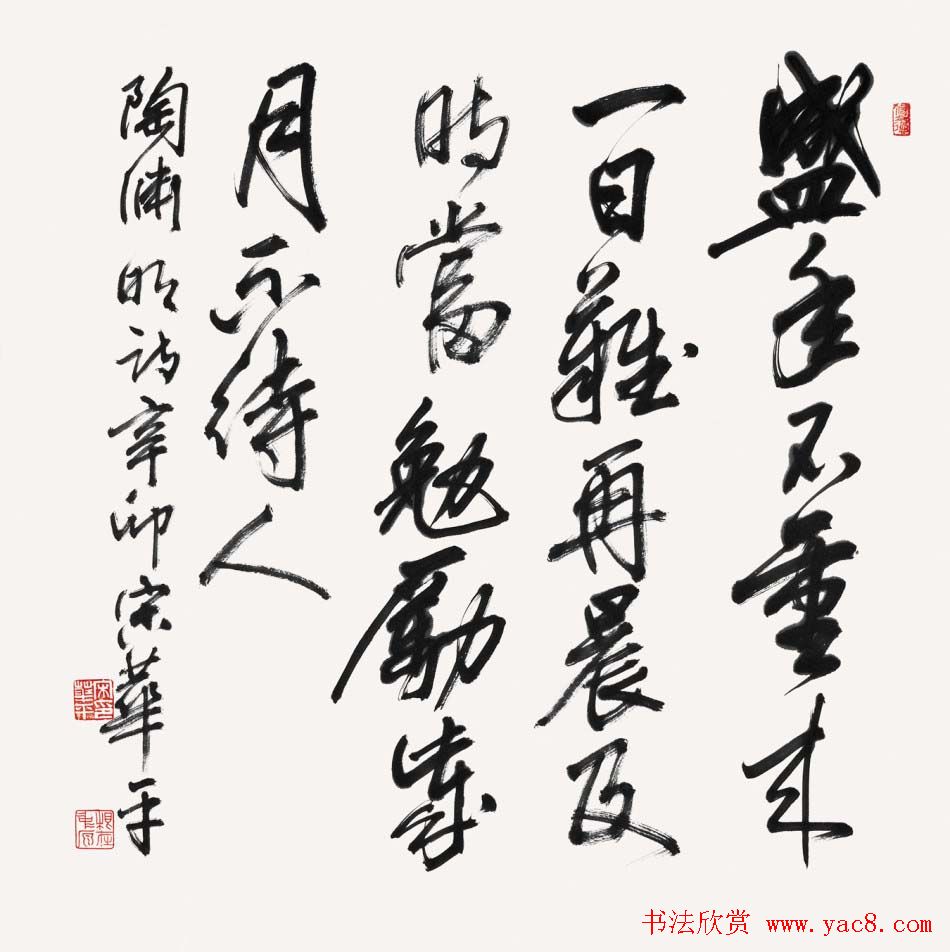 盛年不重来
一日難再晨及
時當勉勵歲
月不待人
陶淵明詩辛卯宋華平
书法欣赏 www.yac8.com